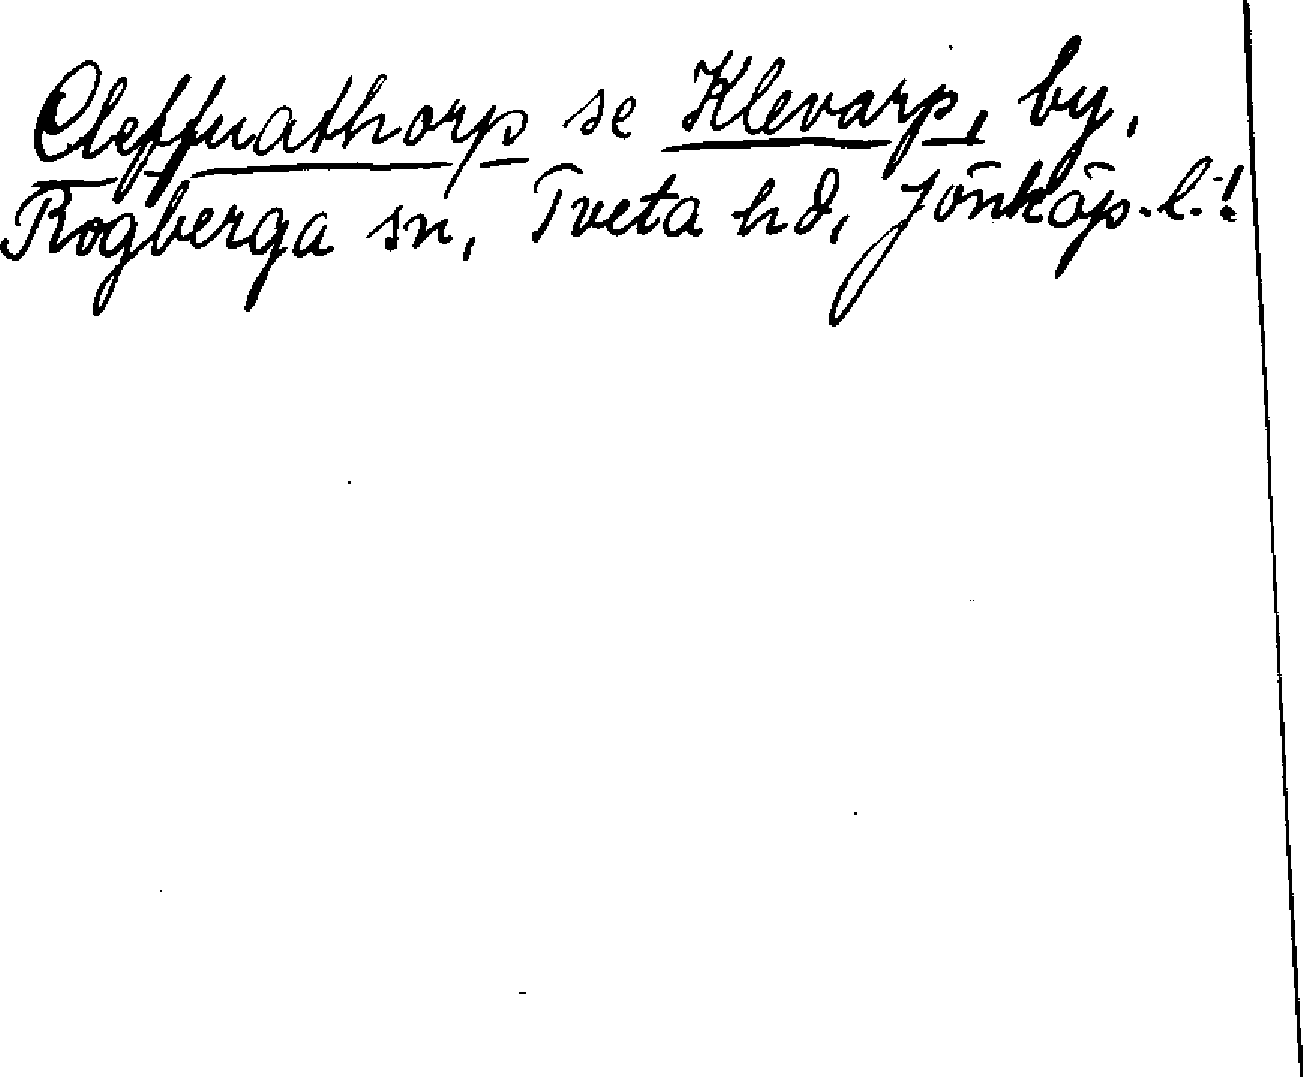 Cleffuathorp se Klevarp, by,
Rogberga sn, Tveta hd, Jönköp.l.!